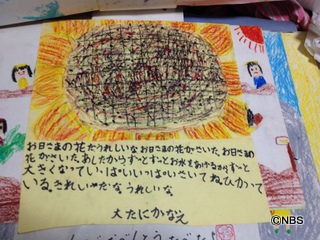 お日さまの花だうれしいなお日さまの花がさいた。お日さまの
花がさいた。あしたからずーとずーとお水をあげるからずーと
大きくなっていっぱいいっぱいさいてねひかって
いる。きれいだなうれしいな
大たにかなえ
©NBS